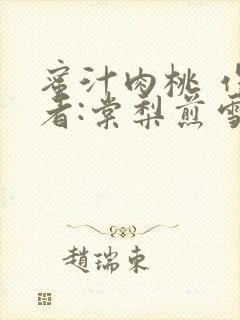 蜜汁肉桃 作
者:棠梨煎雪
趙瑞東